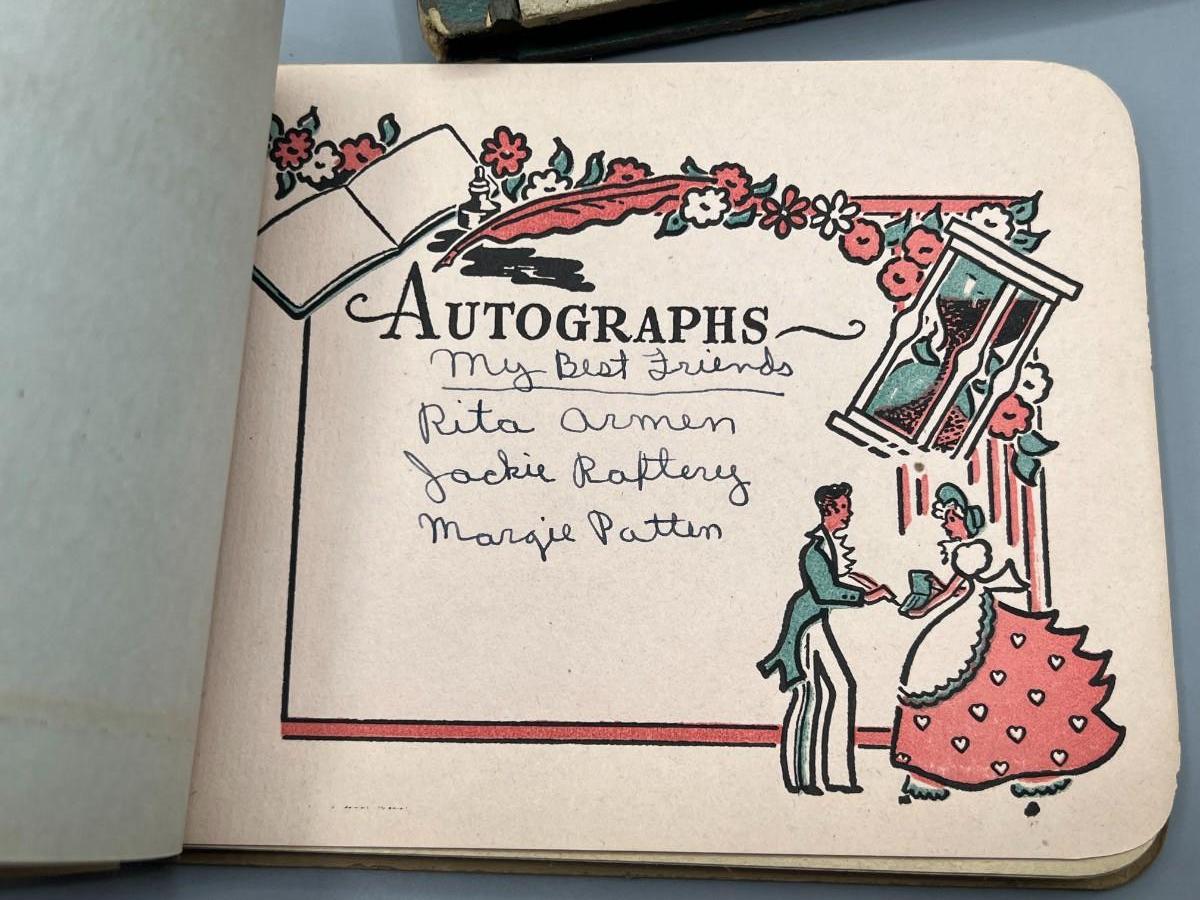 AUTOGRAPHS
My Best Friends
Rita Armen
Jackie Raftery
Margie Patten